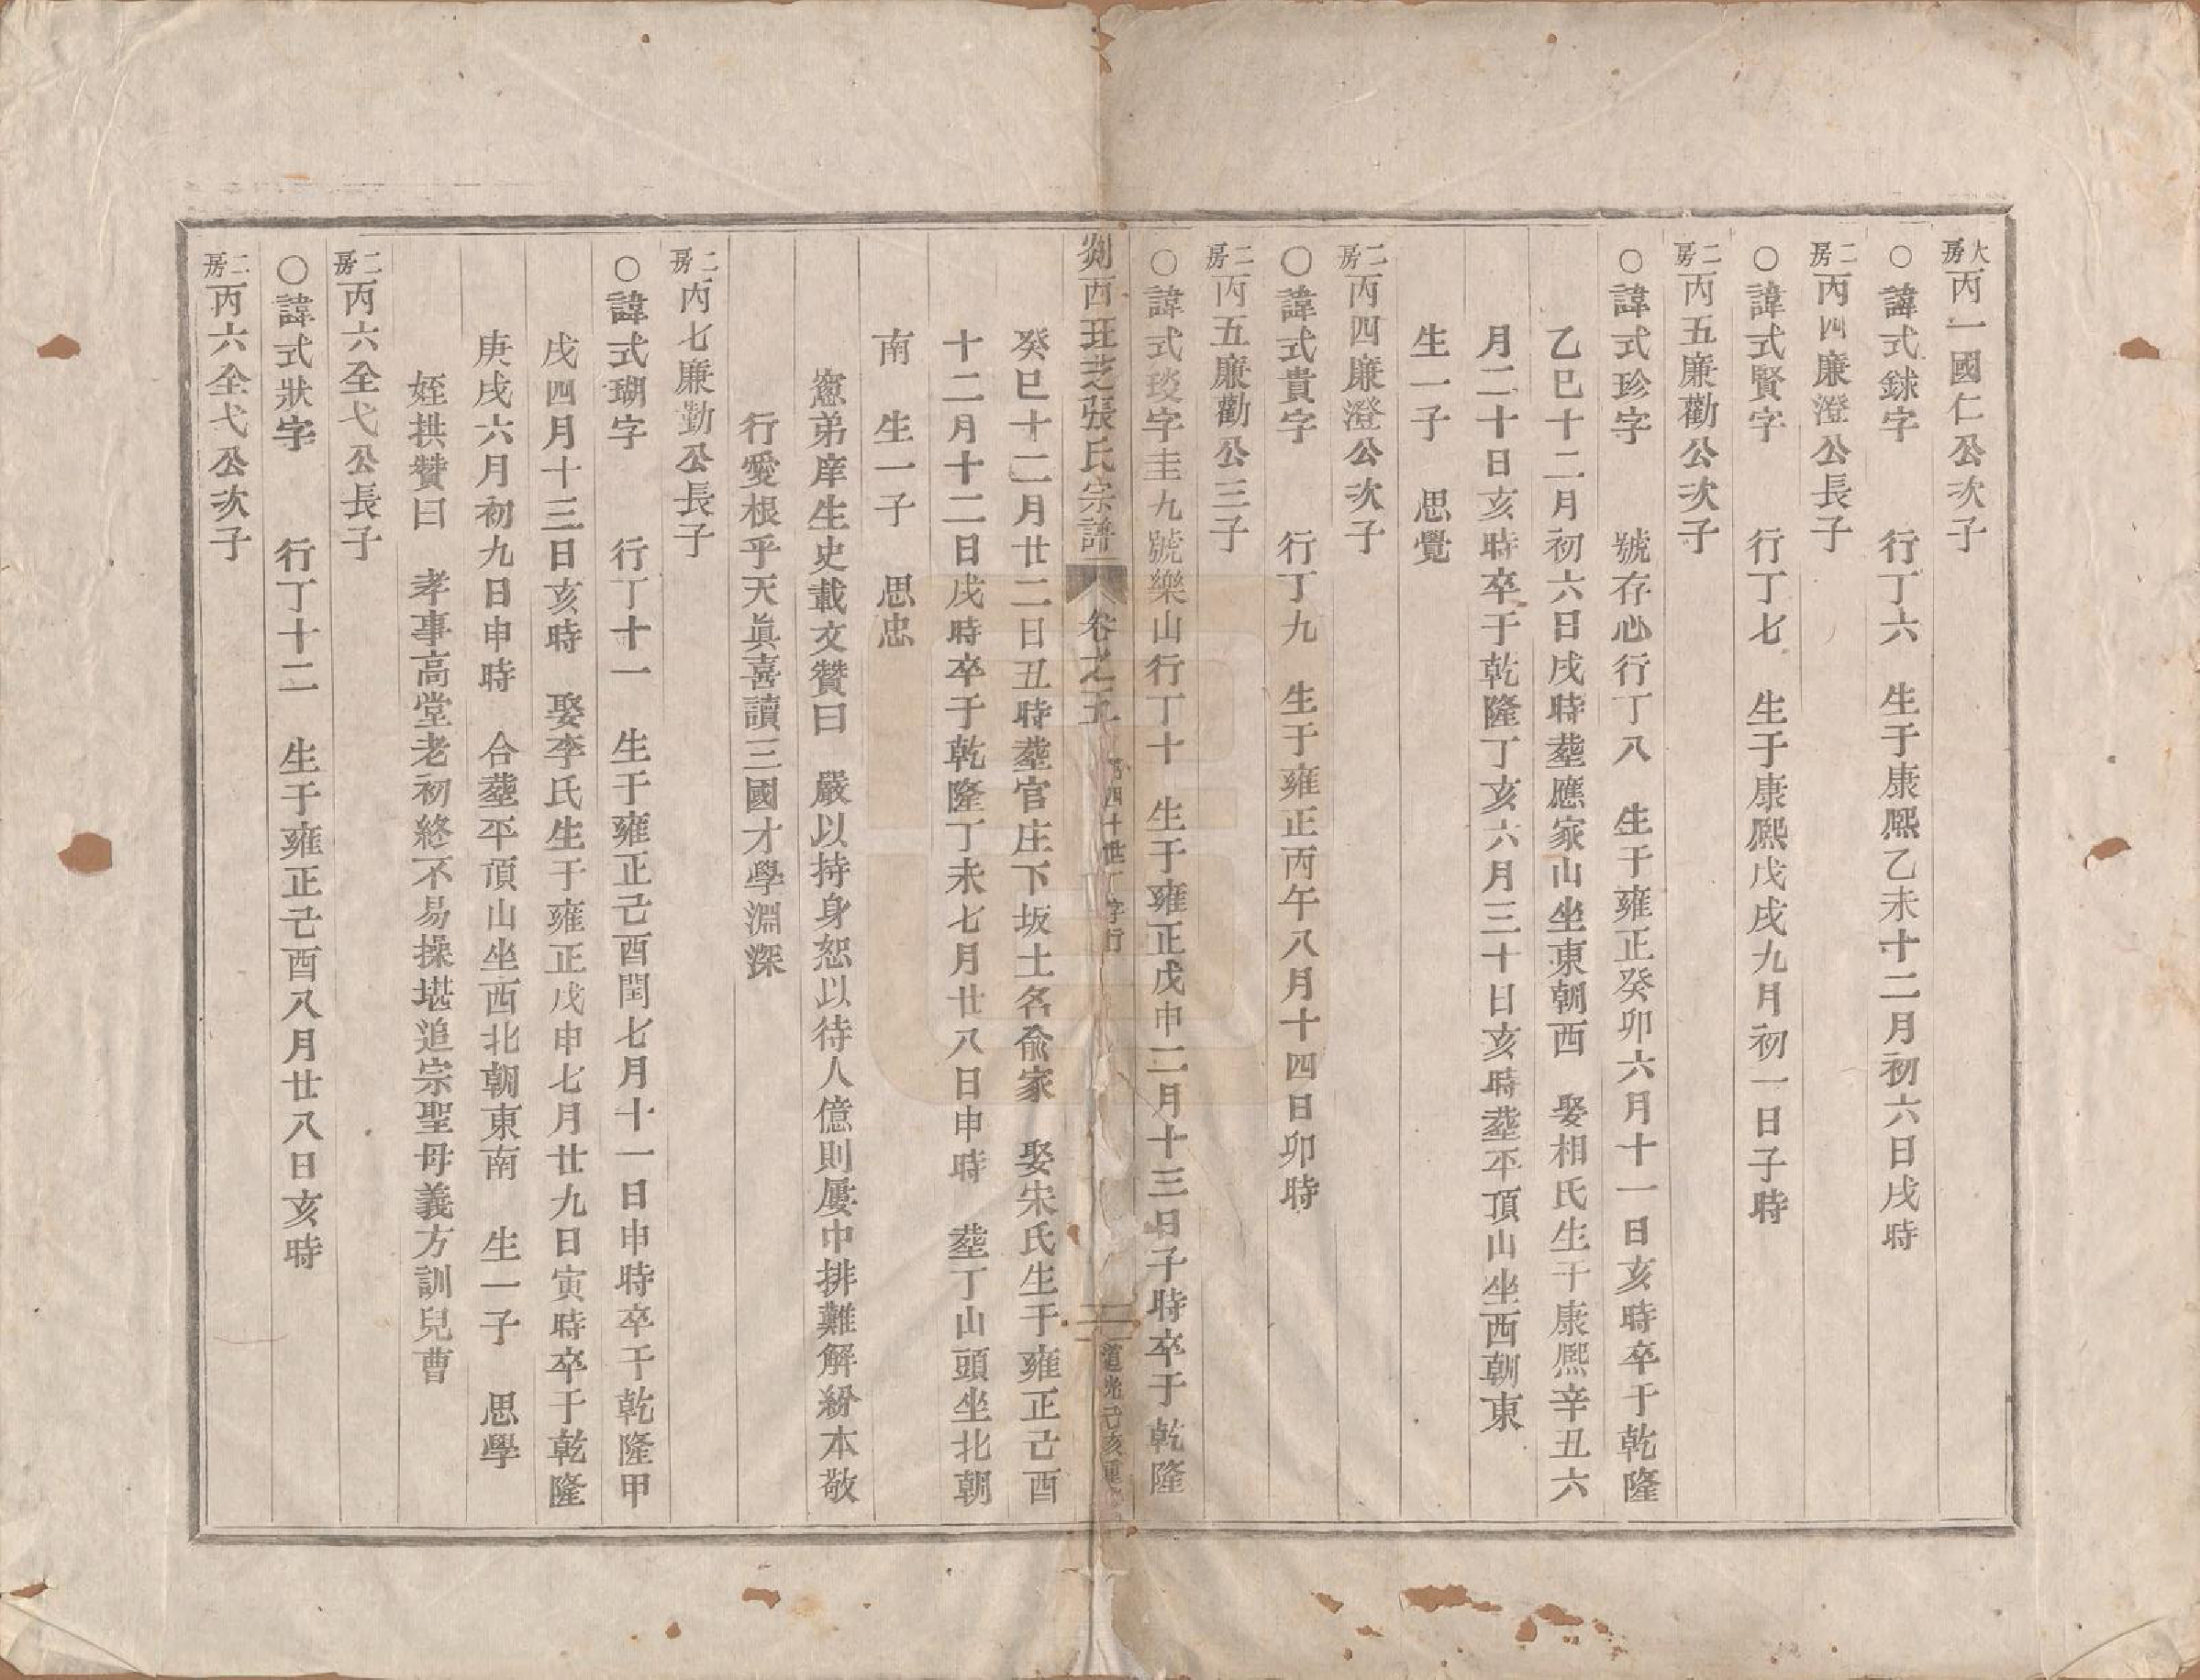 大房丙一國仁公次子
○諱式銶字　行丁六　生于康熈乙未十二月初六日戌時
二房丙四廉澄公長子
○諱式賢字　行丁七　生于康熈戊戌九月初一日子時
二房丙五廉勸公次子
○諱式珍字　號存心行丁八　生于雍正癸卯六月十一日亥時卒于乾隆
乙巳十二月初六日戌時塟應家山坐東朝西　娶相氏生于康熈辛丑六
月二十日亥時卒于乾隆丁亥六月三十日亥時塟平頂山坐西朝東
生一子　思覺
二房丙四廉澄公次子
○諱式貴字　行丁九　生于雍正丙午八月十四日卯時
二房丙五廉勸公三子
○諱式琰字圭九號樂山行丁十　生于雍正戊申二月十三日子時卒于乾隆
剡西珏芝張氏宗譜　卷之五　四十世丁字行　道光己亥重
癸巳十二月廿二日丑時塟官庄下坂土名俞家　娶宋氏生于雍正己酉
十二月十二日戌時卒于乾隆丁未七月廿八日申時　塟丁山頭坐北朝
南　生一子　思忠
窻弟庠生史載文贊曰　嚴以持身恕以待人億則屢中排難解紛本敬
行愛根乎天眞喜讀三國才學淵深
二房丙七廉勤公長子
○諱式瑚字　行丁十一　生于雍正己酉閏七月十一日申時卒于乾隆甲
戌四月十三日亥時　娶李氏生于雍正戊申七月廿九日寅時卒于乾隆
庚戌六月初九日申時　合塟平頂山坐西北朝東南　生一子　思學
姪拱贊曰　孝事高堂老初終不易操堪追宗聖母義方訓兒曹
二房丙六全弋公長子
○諱式狀字　行丁十二　生于雍正己酉八月廿八日亥時
二房丙六全弋公次子